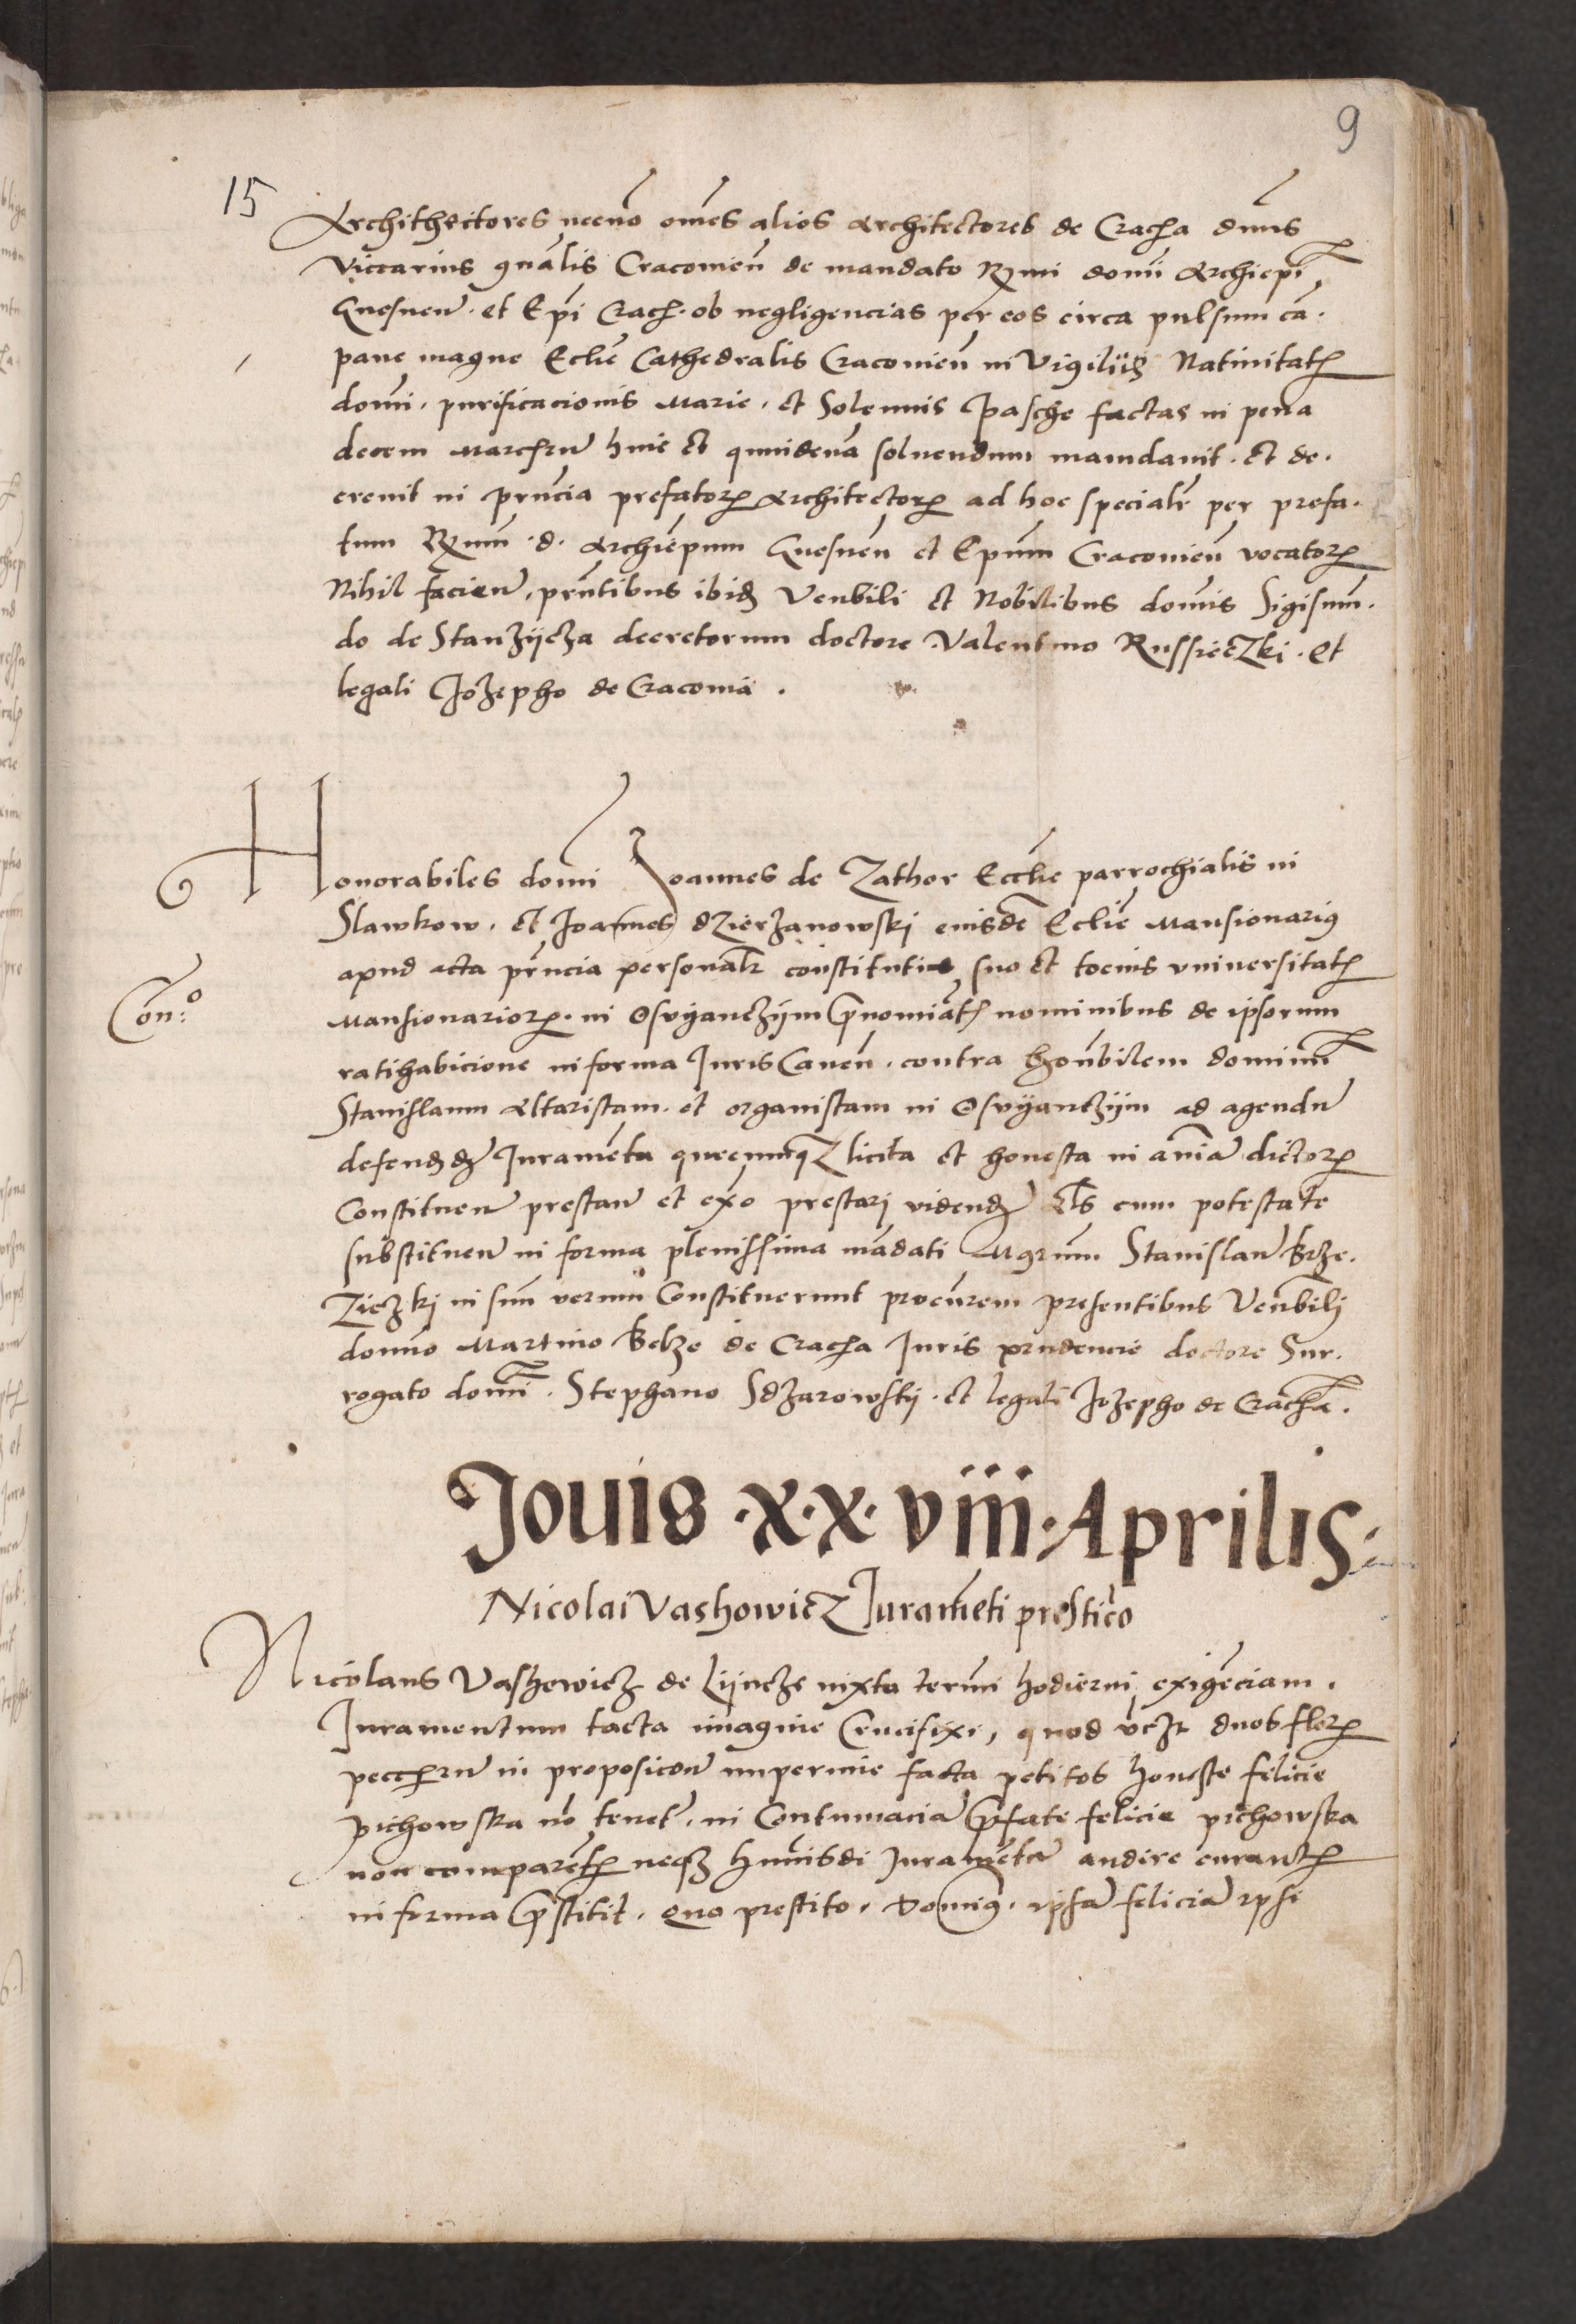 9
15
Architheitores necnō om̄es alios architectores de Crac̄a dn̄us
Viccarius gn̄alis Cracouien̄ de mandato R̄mi domī Archiepī
Gnesnen̄ · et Ep̄i Crac̄ · ob negligencias per eos circa pulsum cā·
pane magne Ecl̄ie Cathedralis Cracouien̄ in Vigilijs Natiuitat̄
domī · purificacionis Marie · et Solennis Pasche factas in pena
decem Marcar̄ hinc et quindenā soluendum mandauit · et de·
creuit in pn̄cia prefator̄ Architector̄ ad hoc specialr̄ per prefa·
tum R̄mum · d · Archiepum Gnesnen̄ et Ep̄um Cracouien̄ vocator̄
Nihil facien̄, pn̄tibus ibid Ven̄bili et Nobilibus domīs Sigismū·
do de Stanzijcza decretorum doctore · Valentino Russieczki · et
legali Jozepho de Cracouia ·
Honorabiles domī Joannes de Zathor Eccl̄ie parrochialis in
Slawkow · et Joannes dzierzanowski eiusdē Ecl̄ie Mansionarius
apud acta pn̄cia personalr̄ constituti suo et tocius vniuersitat̄
Con:o
Mansionarior̄ · in Osvyanczijm pn̄omīat̄ nominibus de ipsorum
ratihabicione in forma Juris Cauen̄ · contra hon̄bilem dominū
Stanislaum Altaristam · et organistam in Osvijanczijm ad agendū
defendd Juramēta quecunq licita et honesta in an̄iā dictor̄
Constituen̄ prestan̄ et ex̄o prestarj vidend Al̄s cum potestate
substituen̄ in forma plenissima mādati Mgrum̄ Stanislaū Brze·
Ziczkj in suū verum Constituerunt procūrem presentibus Ven̄bilj
domīo Martino Belze de Crac̄a Juris prudencie doctore Sur·
rogato domī · Stephano Sdzarowskij · et legali Jozepho de Crac̄a ·
Jouis ·x·x·viii·Aprilis·
Nicolai Vashowicz Juramēti prestic̄o
Nicolaus Vashewicz de Lijncze iuxta term̄i hodierni exigēciam ·
Juramentum tacta imagine Crucifixi, quod duos flor̄
peccar̄ in proposicoñ nuperrime facta petitos honeste felicie
pichowska nō tenet̄ · in Contumaciā pfate felicie pichowska
non comparēt̄ neqz huiusdi Juramētū audire curant̄
in forma pstitit · quo prestito · Domīus · ipsā feliciā ipsi